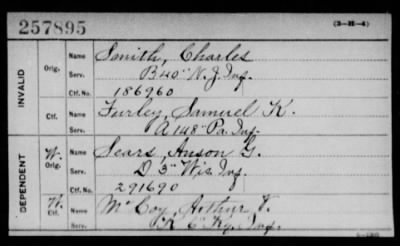 257895
(3-H-4)
INVALID
Orig.
Name Smith, Charles
Serv. B 40" N.J. Inf.
Ctf. No. 186960
Ctf.
Name Furley, Samuel K.
Serv. A 148" Pa. Inf.
DEPENDENT
W.
Orig.
Name Sears, Anson G.
Serv. D 3" Wis. Inf.
Ctf. No. 291690
W.
Ctf.
Name McCoy, Arthur V.
Serv. K 6" Ky. Inf.